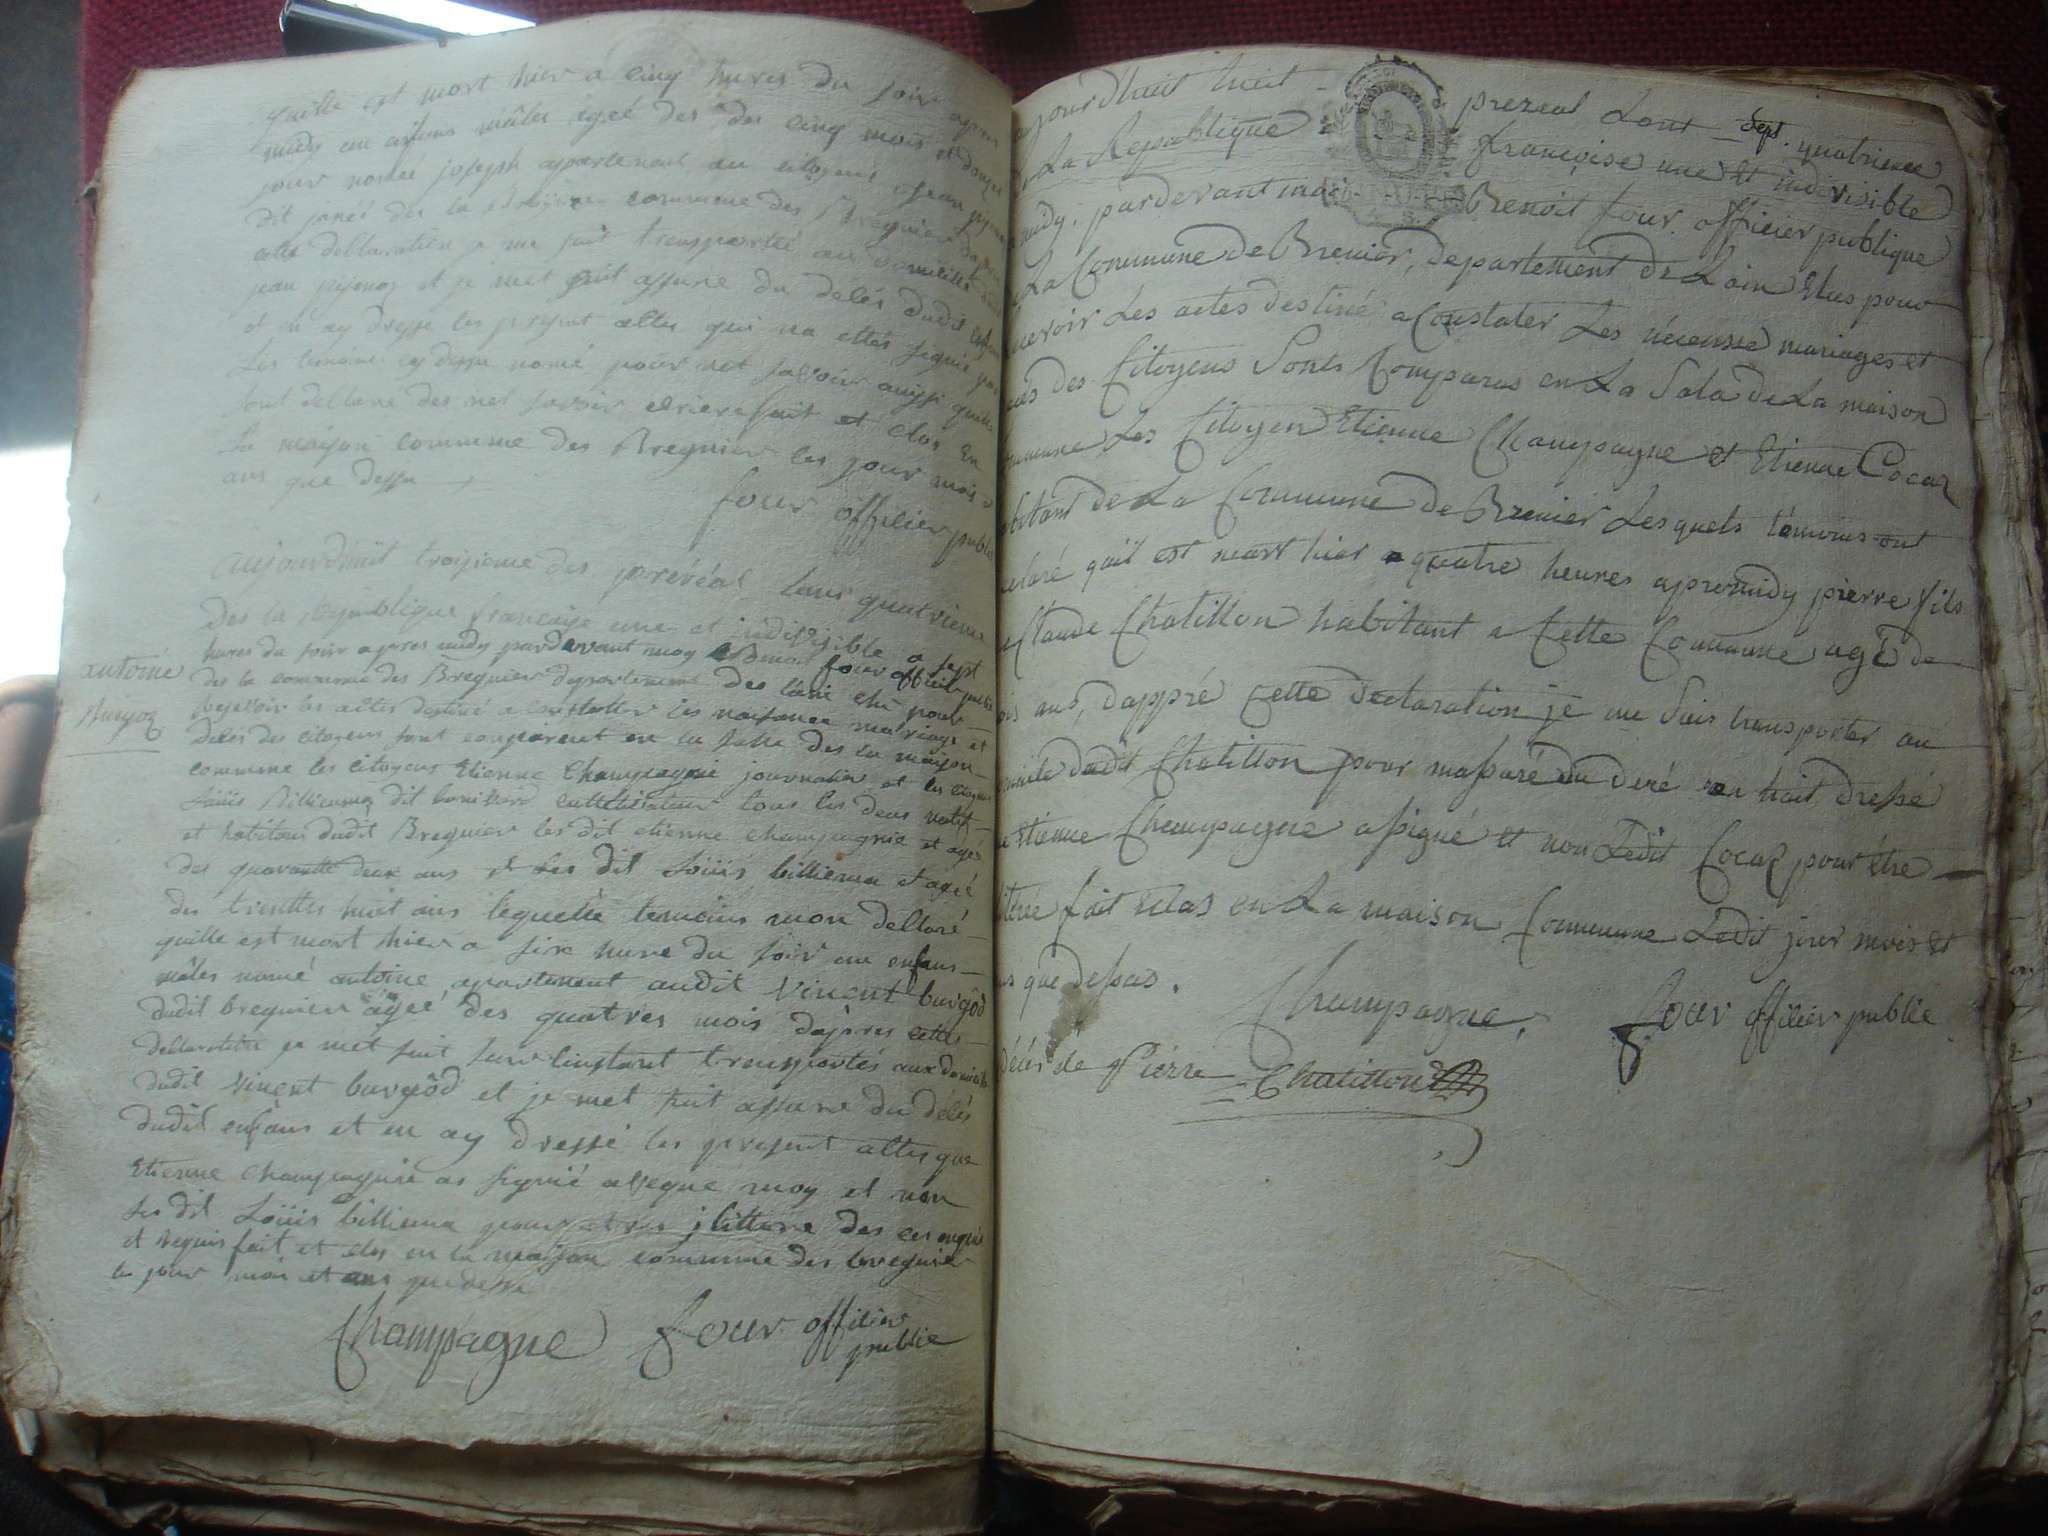 quille est mort hier a cinq hures du soir apres
midy un enfans mâles ageé des des cinq mois et douze
jour nomée joseph apartenant au citoyent jean
dit janéé des la commune des Bregnier dapres
cette dellaration je me suit transportéé au domicille dudit
jean et je met suit assure du délés dudit enfans
et en ay dressé les present altes qui na ettés signié par
les temoins cy dessu nomé pour net savoir aussi quille
font dellare des net savoir fait et clos en
La maison commune des Bregnier les jour mois et
ans que dessu
four offilier public
aujourdhuit troisieme des préréal lans quatrieme
des la republique françaije une et jndivisible a sept
hures du soir apres midy pardevant moy Benoit four offilier public
des la commune des Bregnier departement des lain elu pour
resevoir les altes destiné a constater les naissance mariage et
délés des citoyens sont comparent en la salle des la maison
commune les citoyens Etienne Champagnie journalier et les citoyens
Loüis Billiema dit cultivateur tous les deux natif
et habitans dudit Bregnier les dit etienne champagnie et agés
des quarantte deux ans et les dit Loüis billiema et ageé
des trenttes huit ans lequelle temoins mon dellaré
quille est mort hier a six hure du soir un enfans
mâles nomé antoine apartenant audit vinent burgôd
dudit bregnier ageé des quatres mois dapres cette
dellaration je met suit sur linstant transportés aux domicille
dudit vinent burgôd et je met suit assure du délés
dudit enfans et en ay dressé les present altes que
Etienne champagnie as signié aveque moy et non
les dit Loüis billiema pour etres jlitteré des ces enquis
et requis fait et clos en la maison commune des bregnier
les jour mois et ans que dessu
Champagne four offilier
publie
antoine
Burgoz
jourdhuit huit prereal Lant sept. quatrieme
La Republique françoise une et indivisible
midy. pardevant moi Benoit four. officier publique
La Commune de Brenier, departement de Lain Elus pour
cevoir Les actes destiné a Constater Les nécensse mariages et
cés des Citoyens Sonts Comparus en La Sala de La maison
mmune Les Citoyen Etienne Champagne et Etienne Cocaz
bitant de La Commune de Brenier Lesquels témoins ont
claré quil est mort hier a quatre heures apremidy pierre fils
Claude Chatillon habitant a Cette Commune agé de
ois ans, dappré cette declaration je me suis transporter au
micile dudit Chatillon pour masuré du decé en hait dressé
Etienne Champagne a signé et non Ledit Cocaz pour étre
litéré fait et clas en La maison Commune Ledit jour mois et
ns que dessus.
Champagne. four offilier publie
Délés de Piérre Chatillon